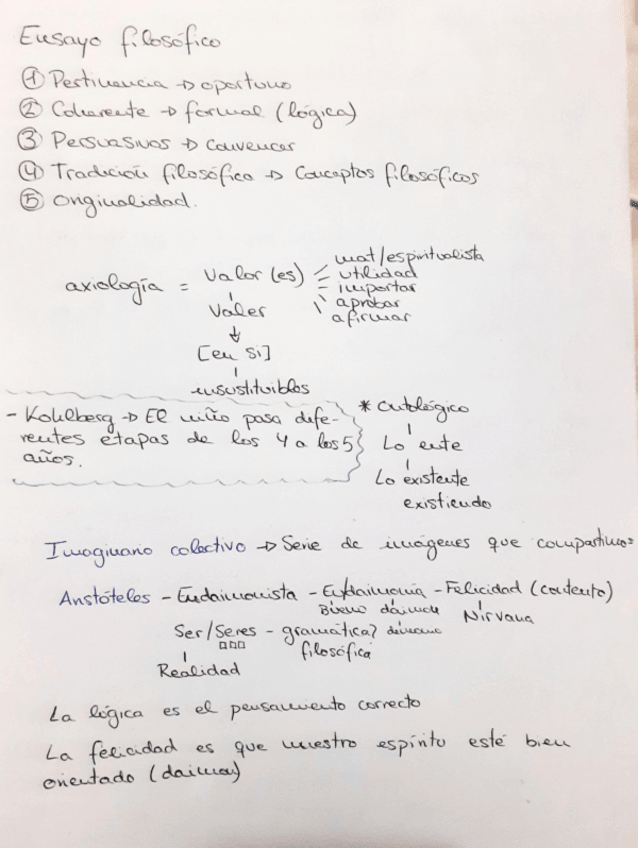 Ensayo filosófico
① Pertinencia → oportuno
② Coherente → formal (lógica)
③ Persuasivos → convencer
④ Tradición filosófica → Conceptos filosóficos
⑤ Originalidad.
axiología = Valor (es)
mat/espiritualista
utilidad
importar
aprobar
afirmar
Valer
[en si]
insustituibles
- Kohlberg → El niño pasa dife-
rentes etapas de los 4 a los 5
años.
* Ontológico
Lo ente
Lo existente
existiendo
Imaginario colectivo → Serie de imágenes que compartimos
Aristóteles - Eudaimonista - Eu/daimonia - Felicidad (contento)
Bueno daimon Nirvana
Ser/Seres - gramática?
filosófica
Realidad
La lógica es el pensamiento correcto
La felicidad es que nuestro espíritu esté bien
orientado (daimon)